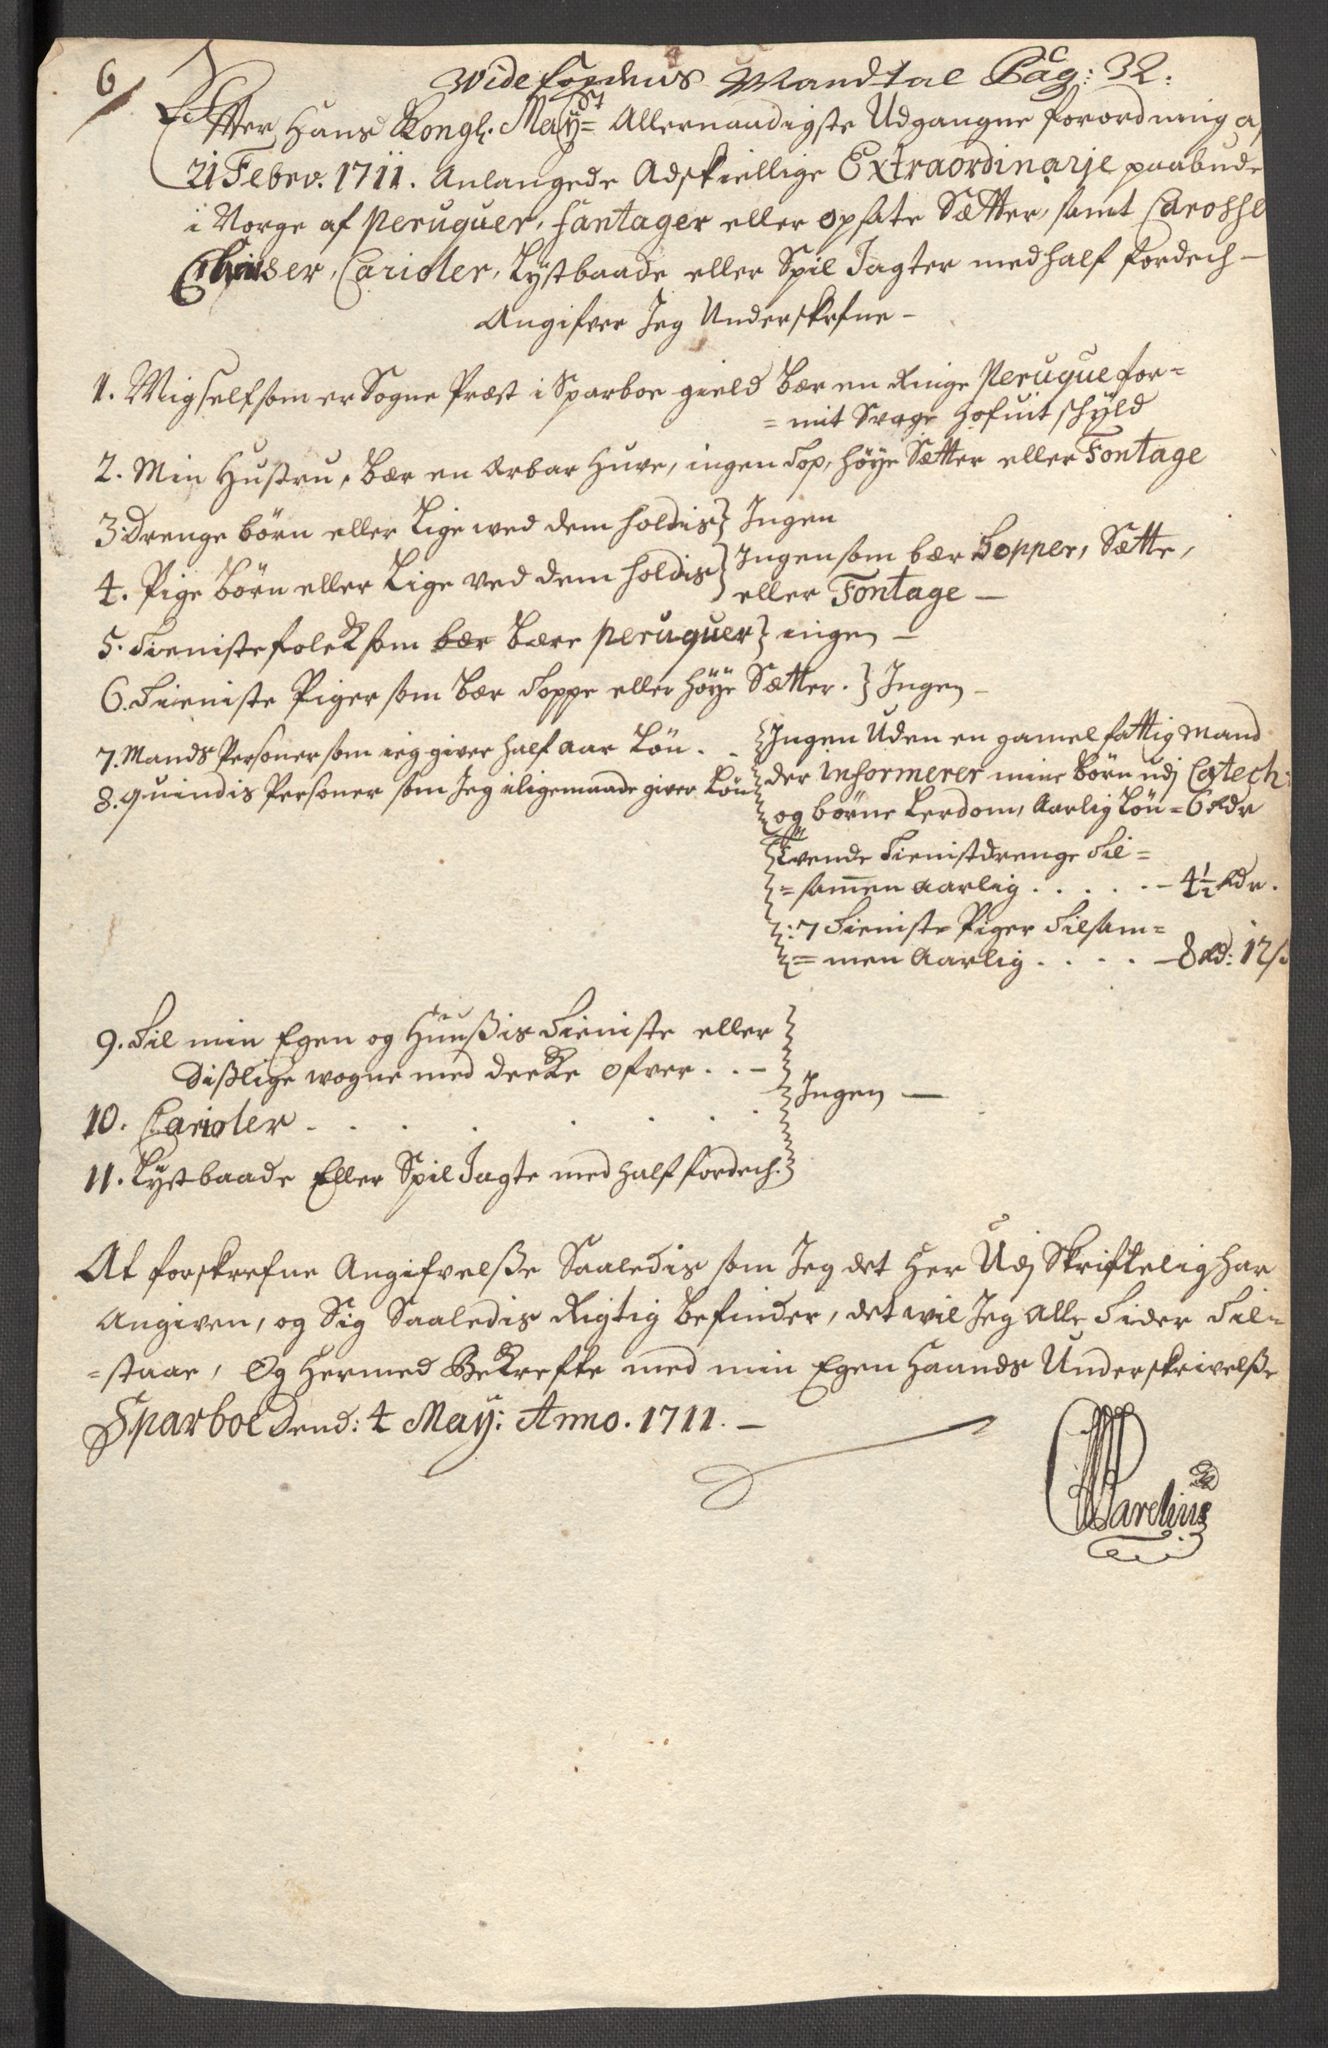 6
Wide Fogdens Mandtal Pag: 32:
Efter Hans Kongl. Mayst= Allernaadigste Udgangne forordning af
21 Febrv. 1711. Anlangede Adskiellige Extraordinarje paabude
i Norge af Peruquer, fantager eller opsate Sætter, samt Carosse
Chaiser, Carioler, Lystbaade eller Spil Jagter med half fordech -
Angifver Jeg Underskrefne -
1. Mig self som er Sogne Præst i Sparboe gield bær en Ringe Peruque for=
= mit Svage Hofuit schyld
2. Min Hustru, bær en Arbar Huve, ingen Top, høye Sætter eller Fontage
3. Drenge børn eller Lige ved dem holdis } Ingen
4. Pige børn eller Lige ved dem holdis } Ingen som bær Topper, Sætte,
eller Fontage -
5. Tieniste folck som bær bære peruquer } ingen -
6. Tieniste Piger som bær Toppe eller høye Sætter. } Ingen -
7. Mands Personer som ieg giver half aar Løn. . Ingen Uden en gamel fattig Mand
8. quindis Personer som Jeg iligemaade giver Løn der informerer mine børn udj Catech:
og børne Lerdom, Aarlig Løn = 6 Rdr
Tvende Tienistdrenge Til=
= samen aarlig . . . . . - 4½ Rdr.
: 7 Tieniste Piger Tilsam=
= men Aarlig . . . . - 8 Rd: 12 s
9. Til min Egen og Huußis Tieniste eller
dißlige wogne med decke ofver . . -
Ingen -
10. Carioler . . . . . . .
11. Lystbaade Eller Spil Jagte med half fordech.
At forskrefne Angifvelße Saaledis som Jeg det Her Udj Skriftelig har
Angiven, og Sig Saaledis Rigtig befinder, det wil Jeg Alle Tider Til=
= staae, Og Hermed Bekrefte med min Egen Haands Underskrivelße
Sparboe Dend: 4 May: Anno. 1711. -
Parelius